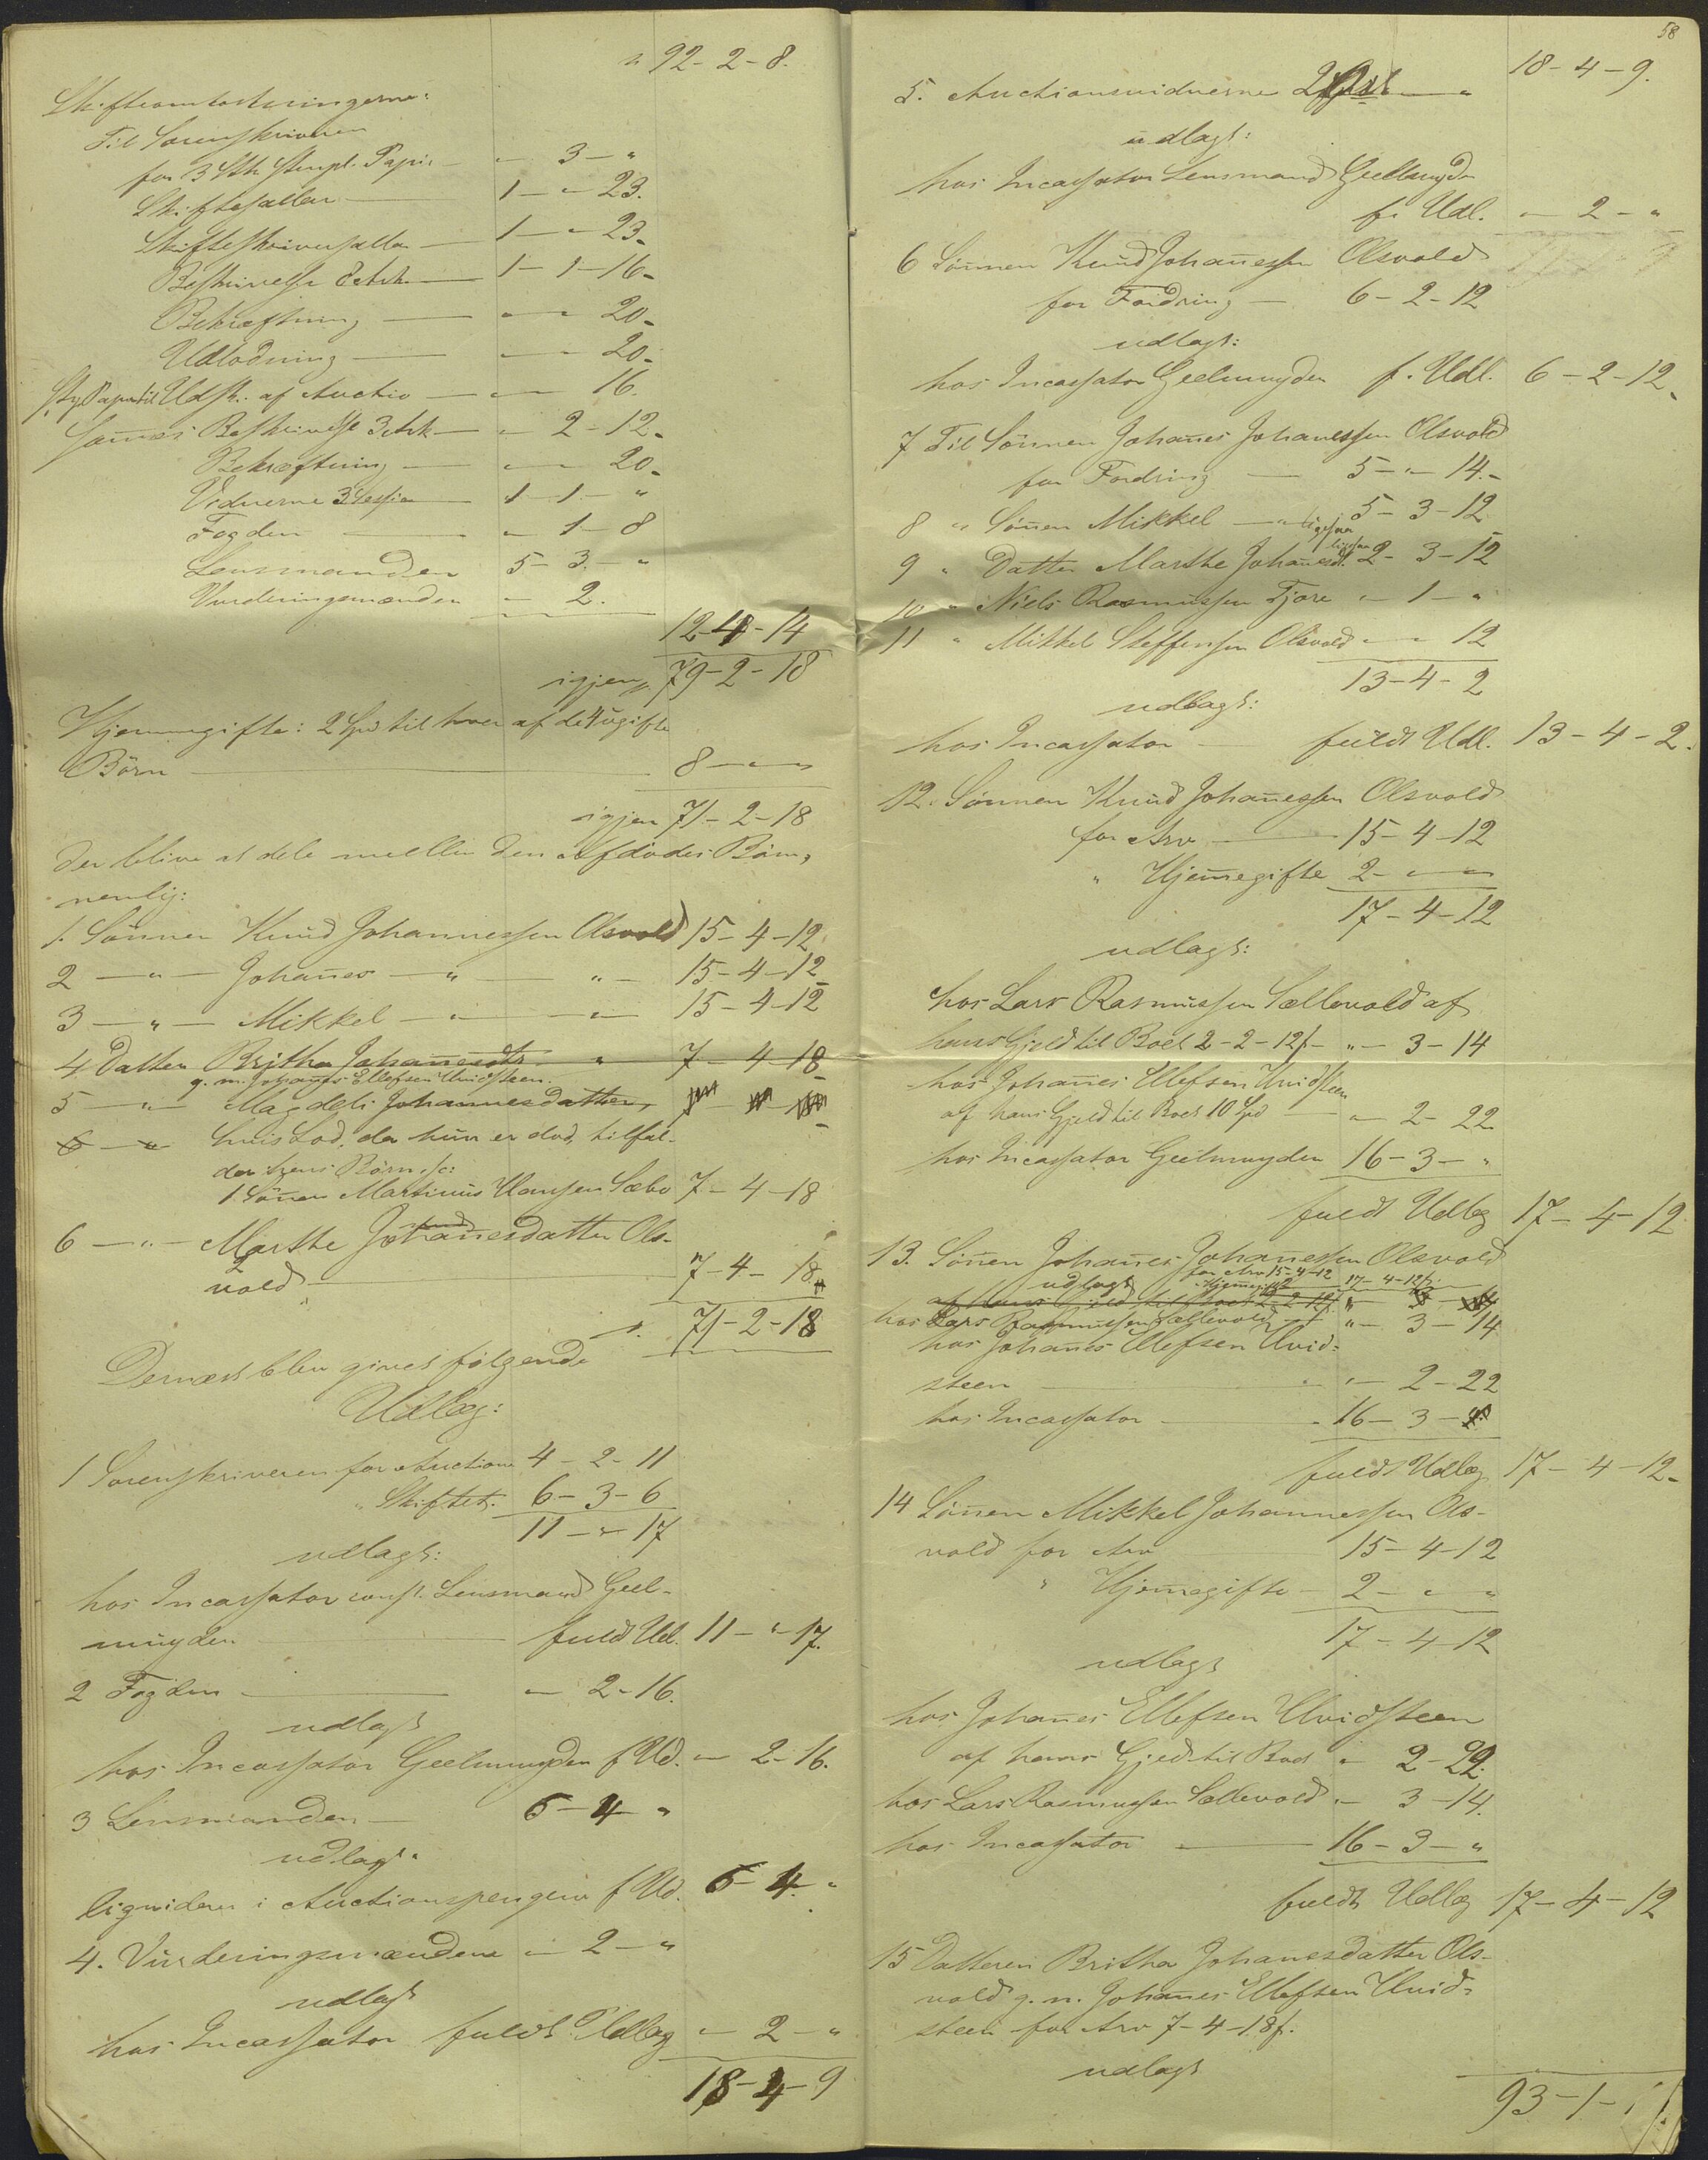 " 92-2-8.
Skifteomkostningerne:
Til Sorenskriveren
for 3 Stk stempl. Papir - " 3 - "
Skiftesallar - 1 - " - 23.
Skifteskriversallar - 1 - " - 23.
Beskrivelse 8 Ark - 1 - 1 - 16.
Bekræftning - " - " 20.
Udlodning - " - " 20.
St. Papir til Udsk. af Auctio - " - " 16.
Sammes Beskrivelse 3 Ark - " 2 - 12.
Bekræftning - " - " 20.
Vidnerne 3 Sessio 1 - 1 - "
Fogden - " 1 - 8
Lensmanden 5 - 3 - "
Vurderingsmænden - " 2.
12-4-14
igjen 79-2-18
Hjemmegifte: 2 Spd til hver af de 4 ugifte
Børn - 8 - " - "
igjen 71-2-18
der blive at dele mellem den Afdødes Børn,
nemlig:
1. Sønnen Knud Johannessen Olsvold 15-4-12
2 - " - Johañes - " - " - 15-4-12
3 - " - Mikkel - " - " 15-4-12
4 Datter Britha Johañesdtr " 7-4-18
g. m. Johañes Ellefsen Hvidsteen.
5 - " - Magdeli Johannesdatter,
6 - " hvis Lod, da hun er død, tilfal-
der hens Børn, sc:
1. Søñen Martinus Hansen Sæbø 7-4-18
6 - " - Marthe Johañesdatter Ols-
vold - 7-4-18
71-2-18
Dernæst blev givet følgende
Udlæg:
1 Sorenskriveren for Auction 4-2-11
" Skiftet. 6-3-6
11 - " - 17
udlagt:
hos Incassator const. Lensmand Geel-
muyden - fuldt Udl. 11 - " - 17.
2 Fogden - " - 2-16.
udlagt
hos Incassator Geelmuyden f Ud. - " 2-16.
3 Lensmanden - 6-4 "
udlagt
liquiderer i Auctionspengene f Ud. 6-4. "
4. Vurderingsmændene " 2 - "
udlagt
hos Incassator fuldt Udlæg " 2 - "
18-4-9
58
18-4-9.
5. Auctionsvidnerne 2 - "
udlagt:
hos Incassator Lensmand Geelmuyden
f. Udl. - " 2 - "
6 Sønnen Knud Johañessen Olsvold
for Fordring - 6-2-12
udlagt:
hos Incassator Geelmuyden f. Udl. 6-2-12.
7 Til Sønnen Johañes Johanessen Olsvold
for Fordring - 5 - " - 14.
8 " Søñen Mikkel - " ligesaa 5-3-12
9 " Datter Marthe Johañesdt. ligesaa 2-3-12
10 " Niels Rasmussen Tjore " - 1 - "
11 " Mikkel Steffensen Olsvold " - " 12
13-4-2
udlagt:
hos Incassator - fuldt Udl. 13-4-2.
12. Sønnen Knud Johañessen Olsvold
for Arv - 15-4-12
" Hjemegifte 2 - " - "
17-4-12
udlagt:
hos Lars Rasmussen Sællevold af
hans Gjeld til Boet 2-2-12 f - " - 3-14
hos Johañes Ellefsen Hvidsteen
af hans Gjeld til Boet 10 Spd - " - 2-22
hos Incassator Geelmuyden 16-3 - "
fuldt Udlæg 17-4-12
13. Søñen Johañes Johañessen Olsvold
for Arv 15-4-12
udlagt Hjemegifte 2 17-4-12
hos Lars Rasmussen Sællevold " - 3-14
hos Johañes Ellefsen Hvid-
steen - " - 2-22
hos Incassator - 16-3 - "
fuldt Udlæg 17-4-12.
14 Søñen Mikkel Johannessen Ols-
vold for Arv 15-4-12
" Hjemegifte - 2 - " "
17-4-12
udlagt
hos Johañes Ellefsen Hvidsteen
af hans Gjeld til Boet " 2-22.
hos Lars Rasmussen Sællevold " - 3-14.
hos Incassator - 16-3 - "
fuldt Udlæg 17-4-12
15 Datteren Britha Johanesdatter Ols-
vold g. m. Johañes Ellefsen Hvid-
steen for Arv 7-4-18 f.
udlagt
93-1-